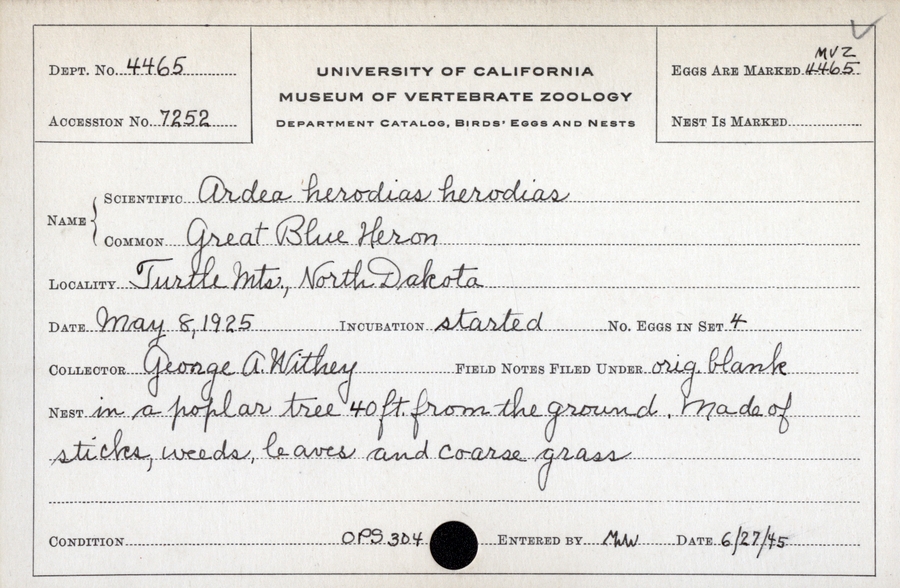 DEPT. No. 4465
ACCESSION No. 7252
UNIVERSITY OF CALIFORNIA
MUSEUM OF VERTEBRATE ZOOLOGY
DEPARTMENT CATALOG, BIRDS' EGGS AND NESTS
MVZ
EGGS ARE MARKED 4465
NEST IS MARKED
NAME
SCIENTIFIC Ardea herodias herodias
COMMON Great Blue Heron
LOCALITY Turtle Mts., North Dakota
DATE May 8, 1925 INCUBATION started No. EGGS IN SET 4
COLLECTOR George A. Withey FIELD NOTES FILED UNDER orig. blank
NEST in a poplar tree 40 ft. from the ground. Made of
sticks, weeds, leaves and coarse grass
CONDITION OPS 304 ENTERED BY MW DATE 6/27/45